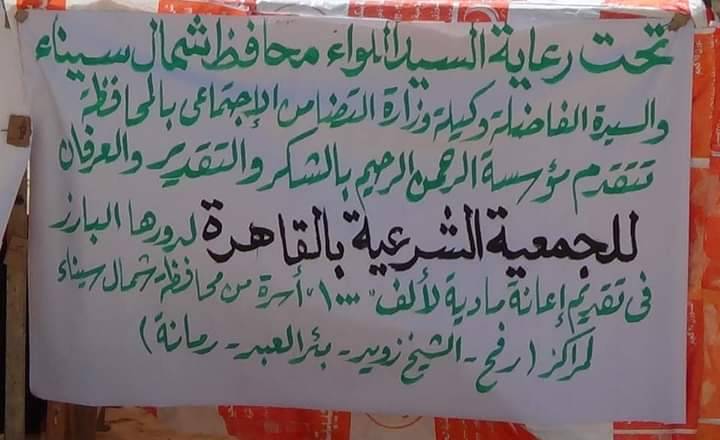 تحت رعاية السيد اللواء محافظ شمال سيناء
والسيدة الفاضلة وكيلة وزارة التضامن الإجتماعى بالمحافظة
تتقدم مؤسسة الرحمن الرحيم بالشكر والتقدير والعرفان
للجمعية الشرعية بالقاهرة لدورها البارز
فى تقديم إعانة مادية لألف "١٠٠٠" أسرة من محافظة شمال سيناء
لمراكز (رفح - الشيخ زويد - بئر العبد - رمانة)